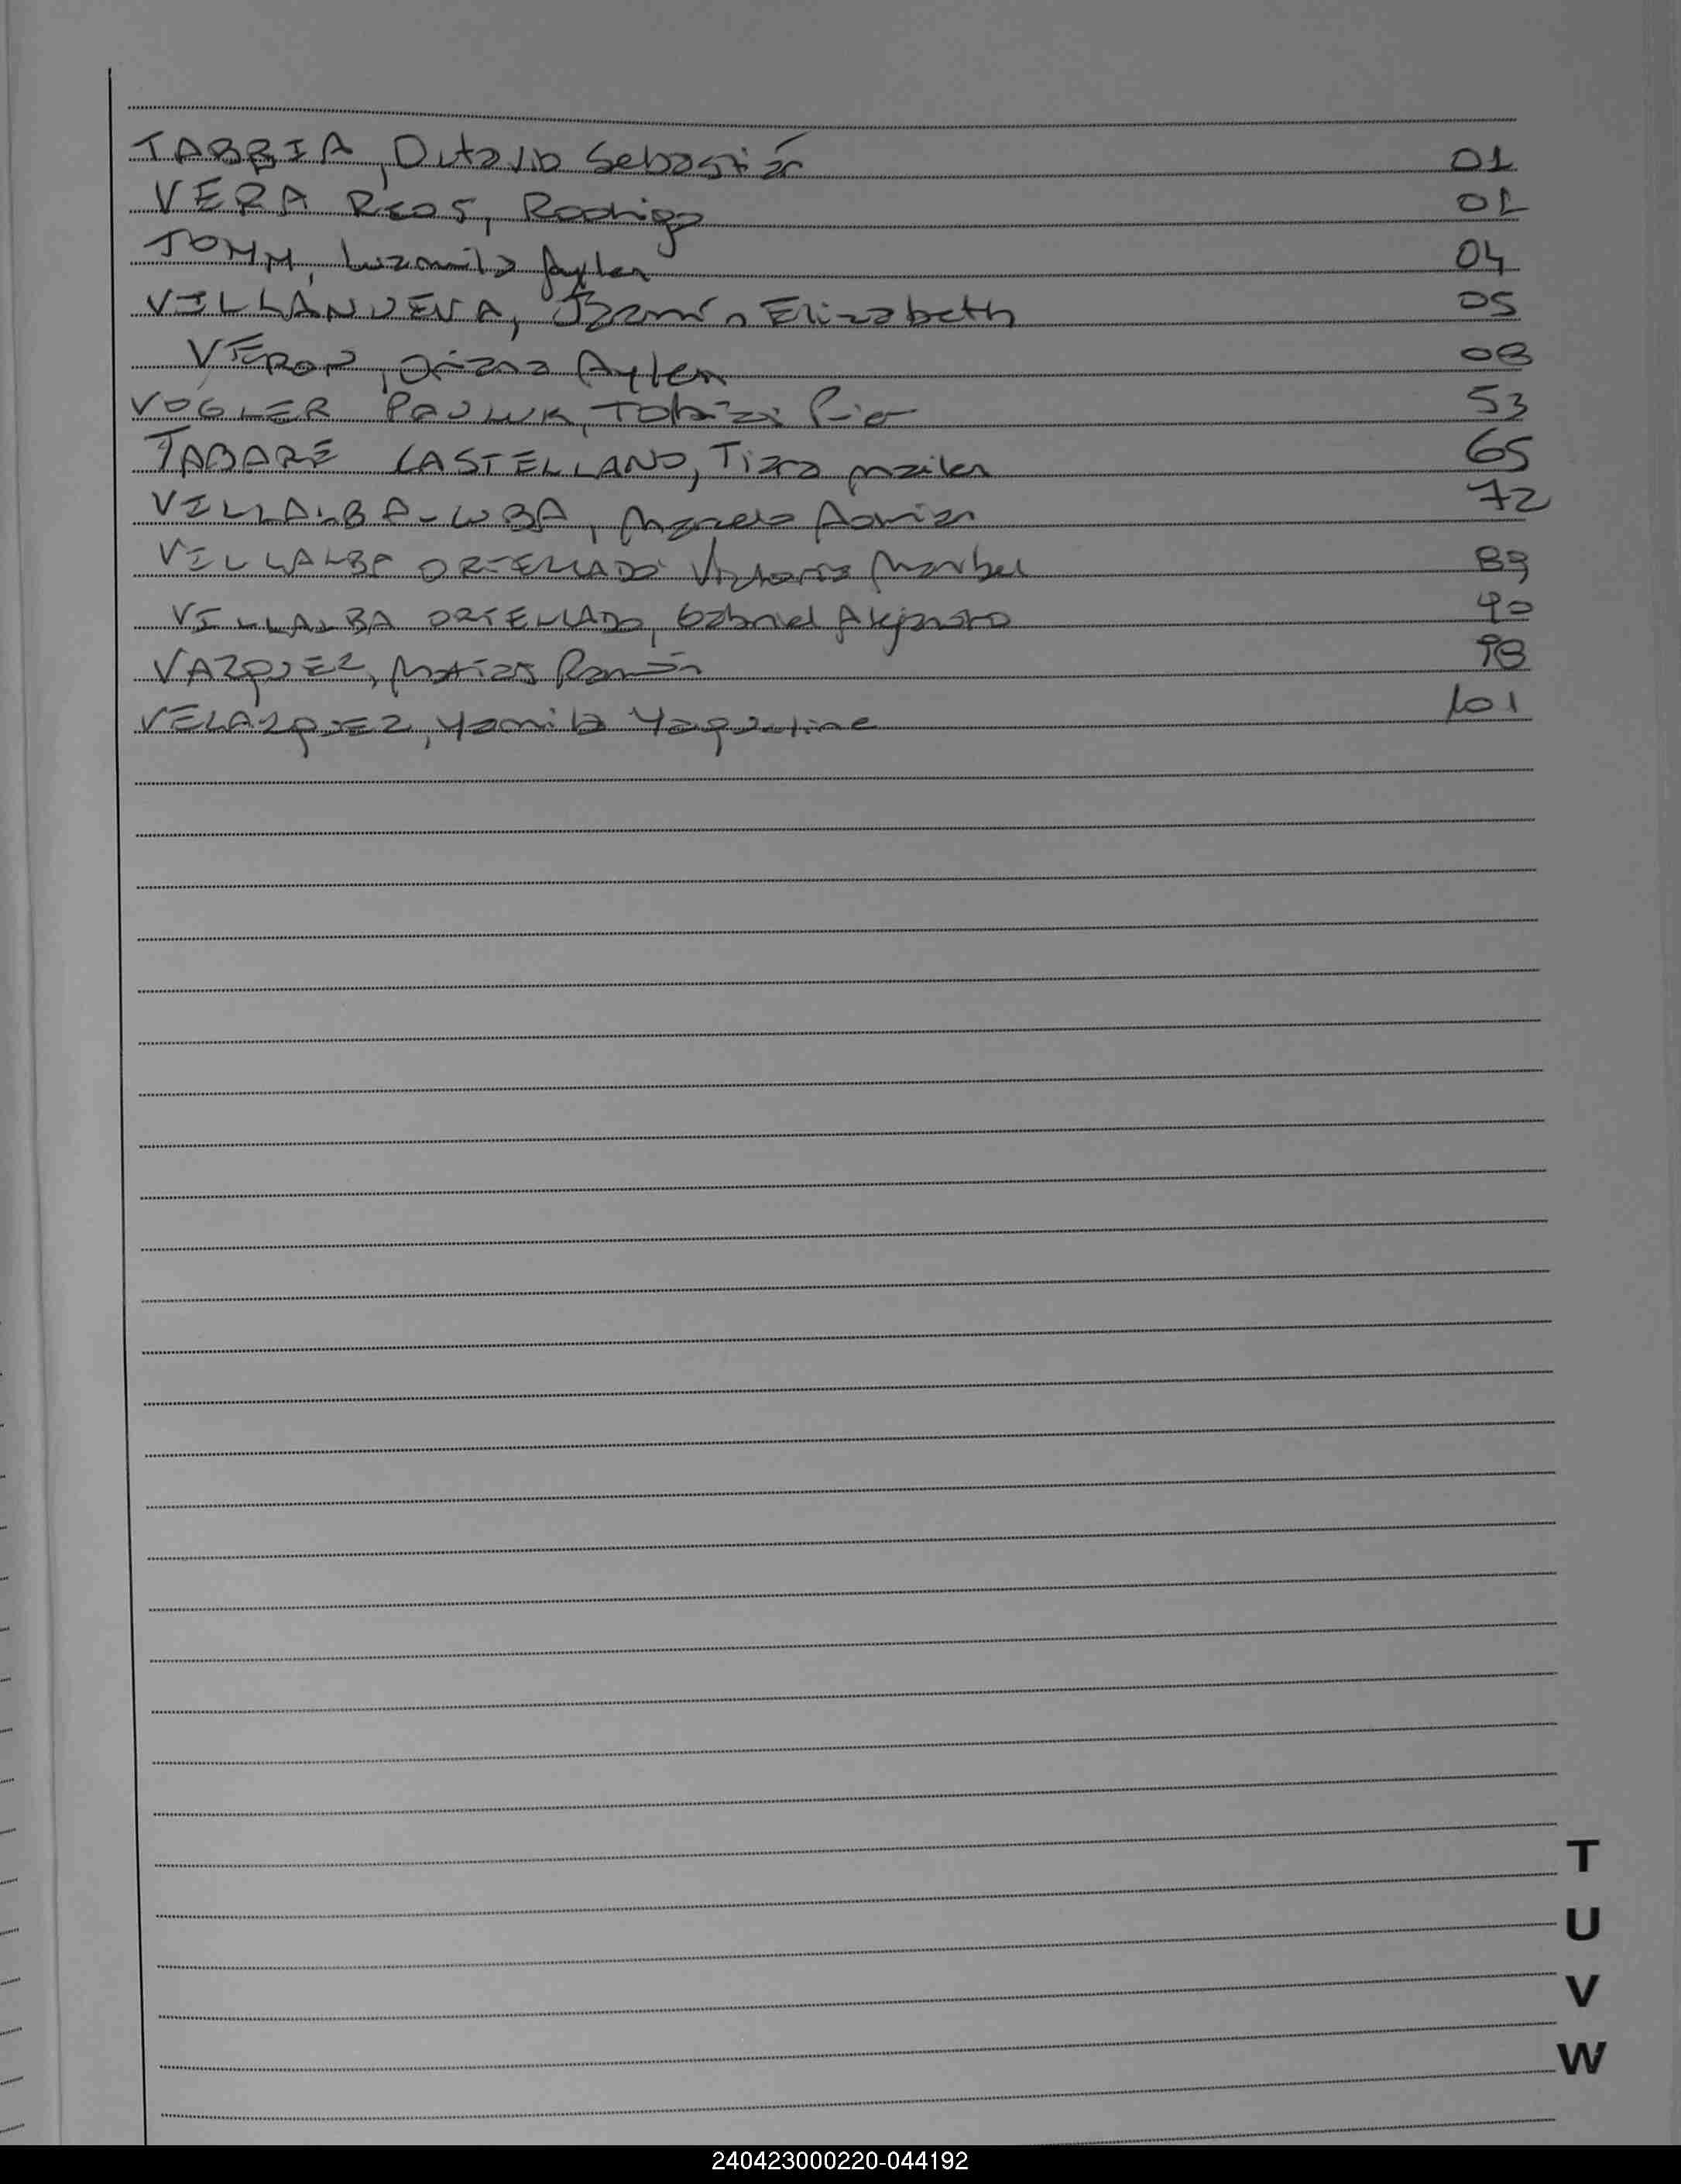 TABBIA, Octavio Sebastián 01
VERA RIOS, Rodrigo 02
TOMM, Luzmila Aylen 04
VILLANUEVA, Yazmín Elizabeth 05
VERON, Oriana Aylen 08
VOGLER PAULUK, Tobías 53
TABARE CASTELLANO, Tiara Mailen 65
VILLALBA, Marcelo Adrian 72
VILLALBA ORTELLADO Victoria Maribel 89
VILLALBA ORTELLADO, Gabriel Alejandro 90
VAZQUEZ, Matías Ramón 98
VELAZQUEZ, Yamila Yaqueline 101
T
U
V
W
240423000220-044192